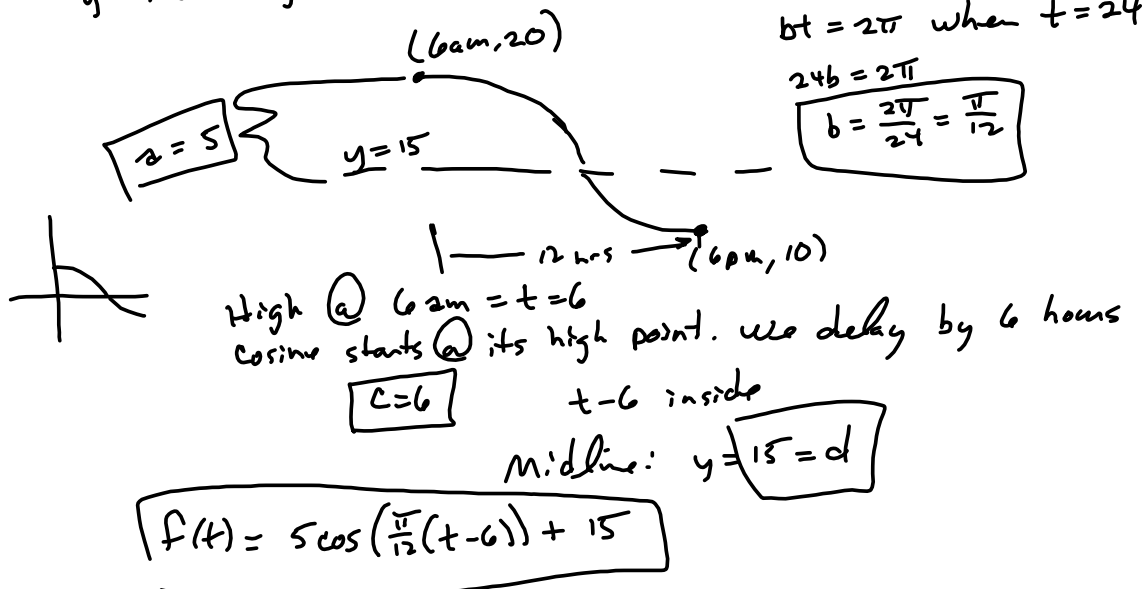 (6am, 20)
bt = 2π when t = 24
24b = 2π
b = 2π/24 = π/12
a = 5
y = 15
12 hrs
(6pm, 10)
High @ 6am = t = 6
Cosine starts @ its high point. We delay by 6 hours
C = 6
t - 6 inside
Midline: y = 15 = d
f(t) = 5 cos(π/12 (t - 6)) + 15